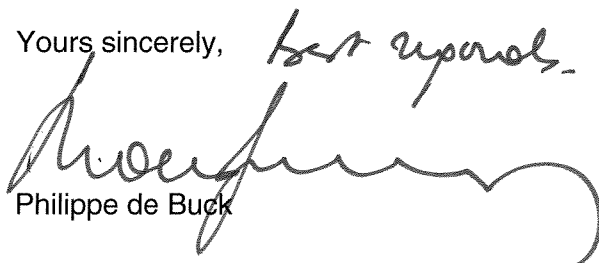 Yours sincerely, best regards.
Philippe de Buck